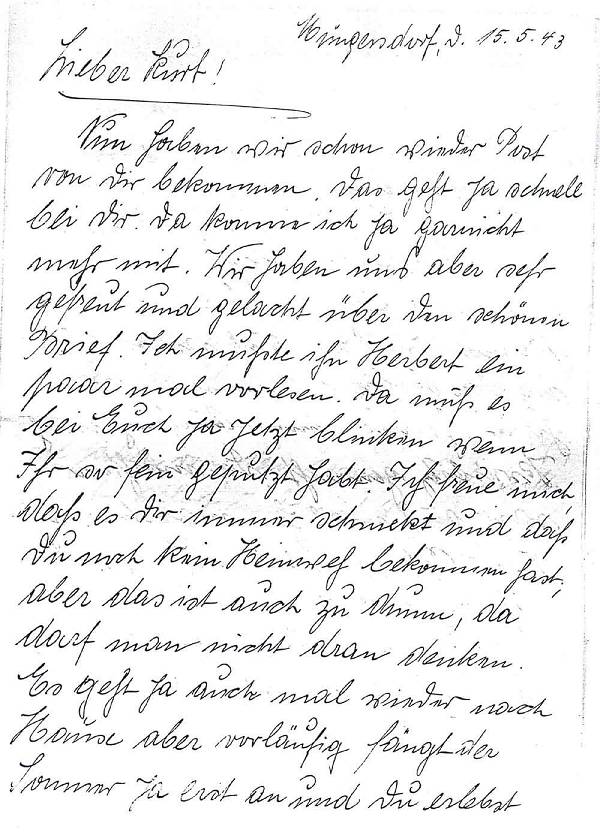 Müngersdorf, d. 15.5.43
Lieber Kurt!
Nun haben wir schon wieder Post
von Dir bekommen. Das geht ja schnell
bei Dir. Da komme ich ja garnicht
mehr mit. Wir haben uns aber sehr
gefreut und gelacht über den schönen
Brief. Ich mußte ihn Herbert ein
paar mal vorlesen. Da muß es
bei Euch ja jetzt blinken wenn
Ihr so fein geputzt habt. Ich freue mich,
daß es Dir immer schmekt und daß
Du noch kein Heimweh bekommen hast,
aber das ist auch zu dumm, da
darf man nicht dran denken.
Es geht ja auch mal wieder nach
Hause aber vorläufig fängt der
Sommer ja erst an und Du erlebst